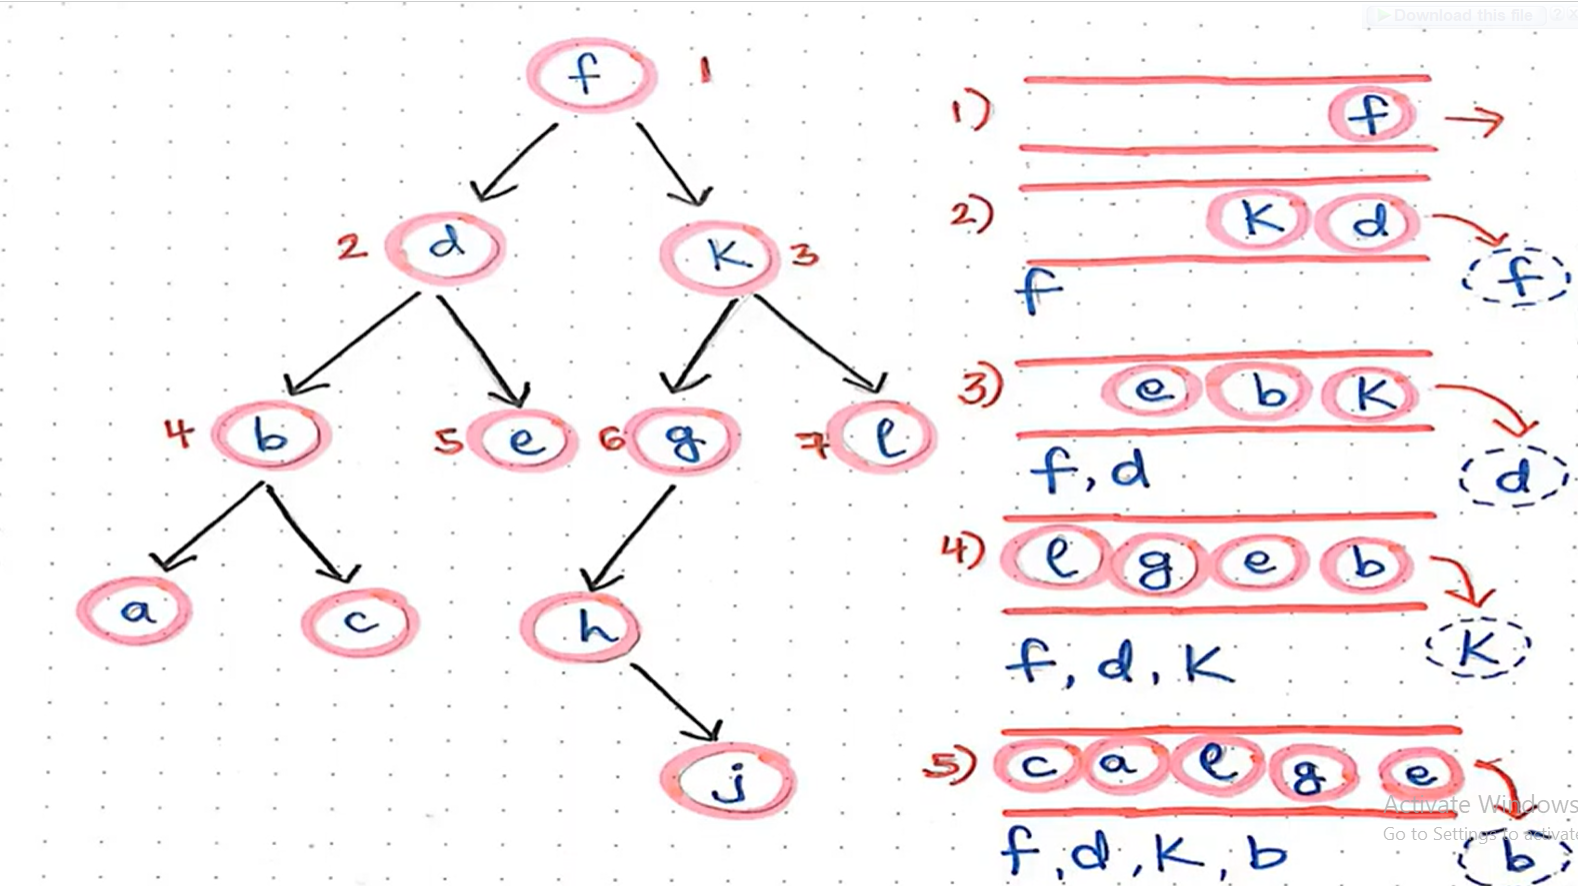 Download this file
f 1
2 d K 3
4 b 5 e 6 g 7 l
a c h
j
1) f
2) K d
f f
3) e b K
f, d d
4) l g e b
f, d, K K
5) c a l g e
Activate Windows
Go to Settings to activate
f, d, K, b b